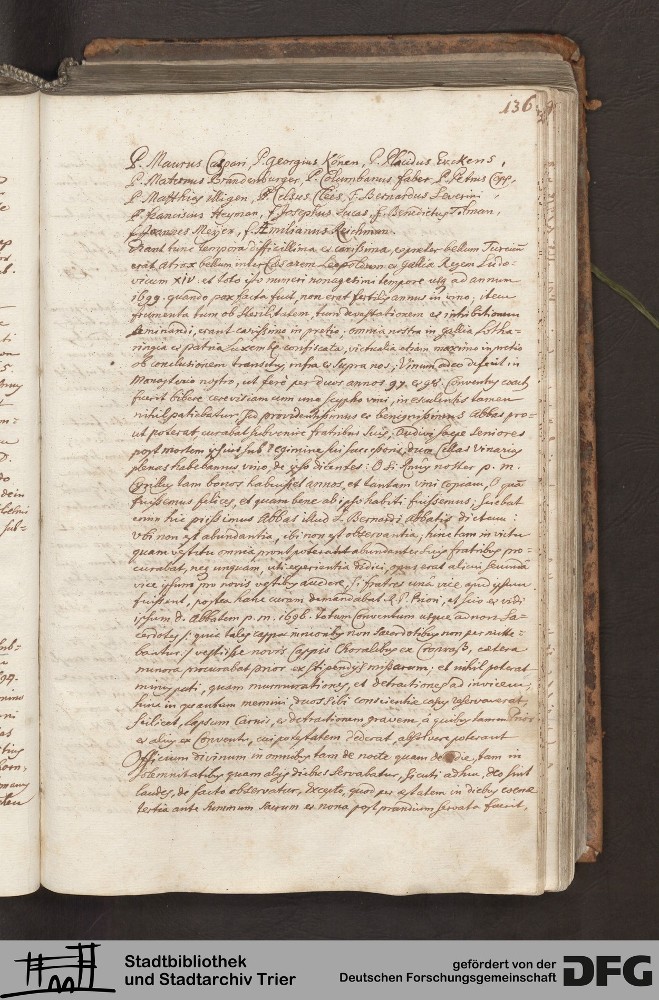 136
P. Maurus Caspari, P. Georgius Könen, P. Placidus Erckens,
P. Maternus Brandenburger, P. Columbanus Faber, P. Petrus Copp,
P. Matthias illigen, P. Celsus Cleis, F. Bernardus Leverini,
P. franciscus Heyman, f. Josephus Lucas, f. Benedictus Tolman,
f. Joannes Meÿer, f. Æmilianus Reichman.
Erant tunc tempora difficillima et carissima, et præter bellum Turcicum
erat atrox bellum inter Cæsarem Leopoldum et Galliæ Regem Ludo-
vicum XIV. et toto isto numeri nonagesimi tempore usq ad annum
1699. quando pax facta fuit, non erat fertilis annus in vino; item
frumenta tum ob sterilitatem, tum devastationem et inhibitionem
seminandi, erant carissimo in pretio. omnia nostra in gallia, Lotha-
ringia et patria Luxemb. confiscata, victualia etiam maximo in pretio
ob conclusionem transitus infra et supra nos; Vinum adeo defecit in
Monasterio nostro, ut ferè per duos annos 97. et 98. Conventus coactus
fuerit bibere cerevisiam cum uno scypho vini, in esculentis tamen
nihil patiebatur, sed providentissimus et benignissimus Abbas pro-
ut poterat curabat subvenire fratribus suis; audivi sæpe seniores
post mortem ipsius sub regimine sui successoris, dum cellas vinarias
plenas habebamus vino, de ipso dicentes: O si Rmus noster p. m.
tam bonos habuisset annos, et tantam vini copiam, O quam
fuissemus felices, et quam bene ab ipso habiti fuissemus; sciebat
enim hic piissimus Abbas illud S. Bernardi Abbatis dictum:
Ubi non est abundantia, ibi non est observantia, hinc tam in victu
quam vestitu omnia prout poterat abundanter suis fratribus pro-
curabat, nec unquam, uti experientia didici, opus erat alicui secunda
vice ipsum pro novis vestibus accedere, si fratres una vice apud ipsum
fuissent, postea hanc curam demandabat R. P. Priori, et scio et vidi
ipsum D. Abbatem p. m. 1696. totum Conventum usque ad non Sa-
cerdotes /: quia tales cappæ minoribus non sacerdotibus non permitte-
bantur :/ vestiisse novis Cappis Choralibus ex, cætera
minora procurabat prior ex stipendiis missarum, et nihil poterat
minus pati, quam murmurationes, et detractiones ad invicem,
hinc in quantum memini duos sibi conscientiæ casus reservaverat,
scilicet, lapsum carnis, et detractionem gravem, à quibus tamen Prior
et alius ex Conventu, cui potestatem dederat, absolvere poterant
Officium divinum in omnibus tam de nocte quam de die, tam in
solemnitatibus quam aliis diebus servabatur, sicuti adhuc, Deo sint
laudes, de facto observatur, excepto, quod per æstatem in diebus cœnæ
tertia ante summum sacrum et nona post prandium servata fuerit,
Stadtbibliothek
und Stadtarchiv Trier
gefördert von der
Deutschen Forschungsgemeinschaft
DFG